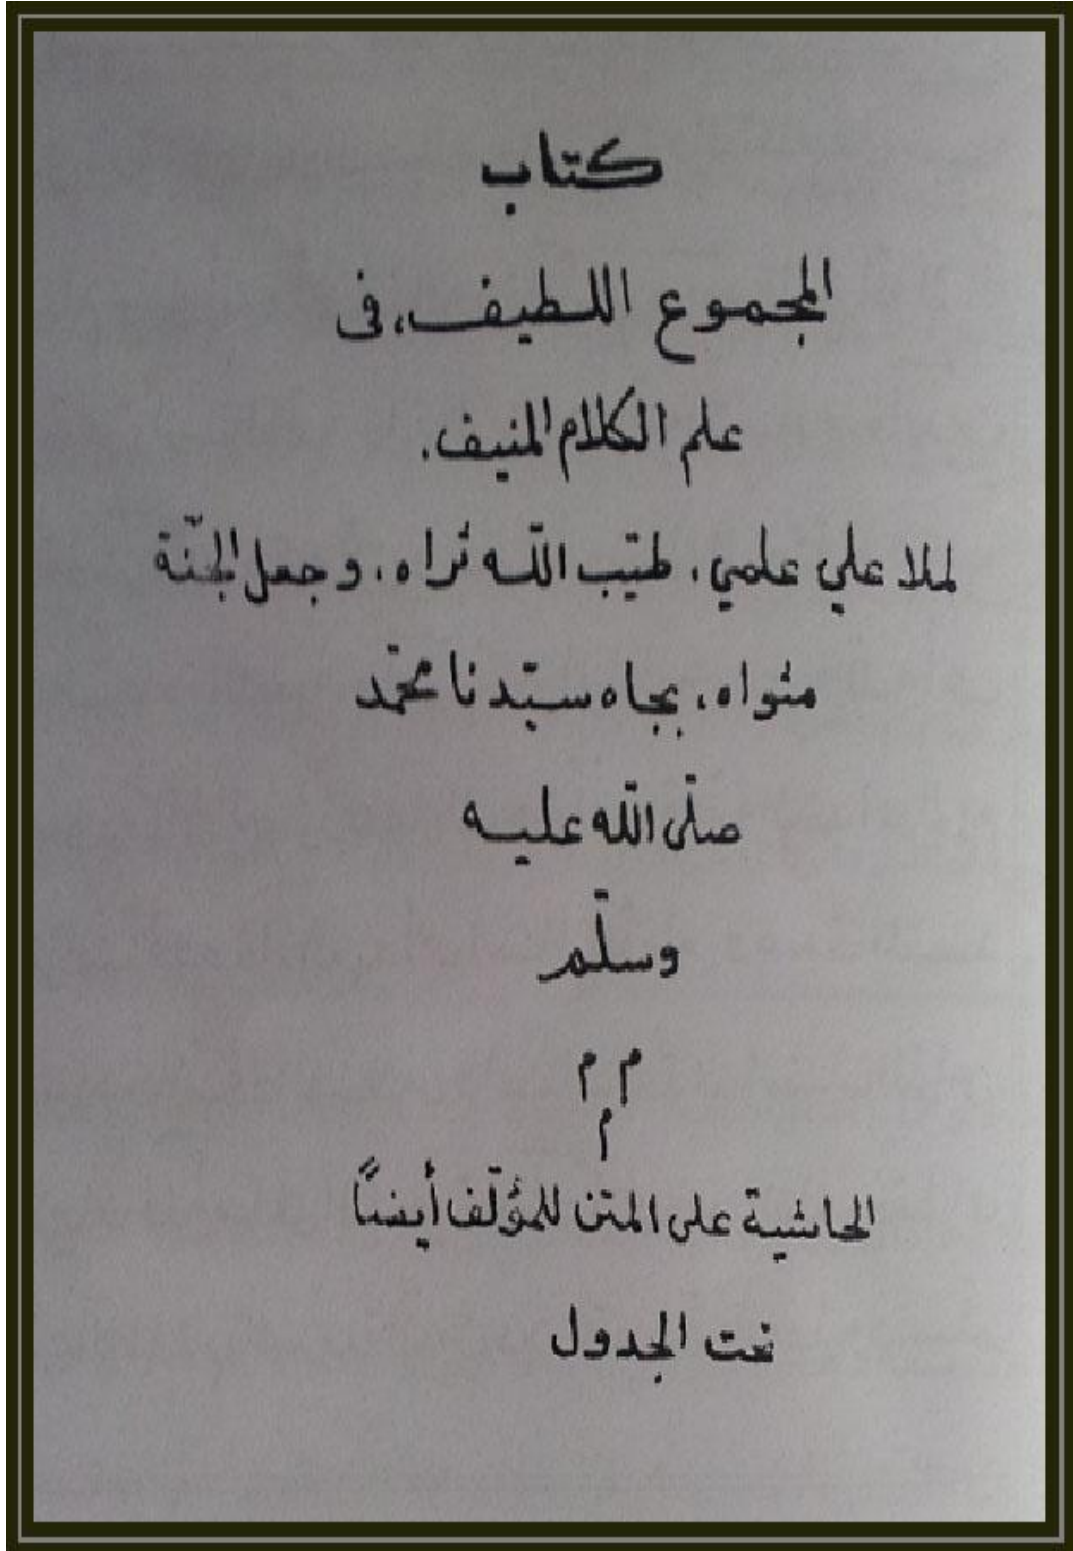 كتاب
المجموع اللطيف، في
علم الكلام المنيف.
لملا علي علمي، طيّب اللّه ثراه، وجعل الجنّة
مثواه، بجاه سيّدنا محمّد
صلّى اللّه عليه
وسلّم
م م
م
الحاشية على المتن للمؤلّف أيضاً
تحت الجدول